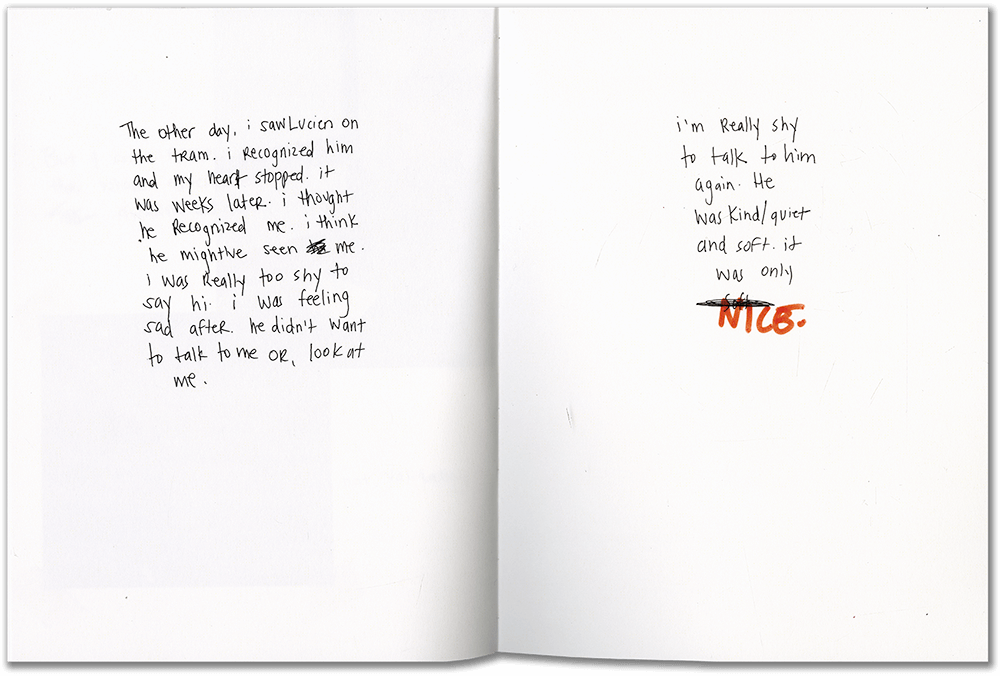 The other day, i saw Lucien on
the tram. i Recognized him
and my heart stopped. it
was weeks later. i thought
he Recognized me. i think
he might've seen me.
i was Really too shy to
say hi. i was feeling
sad after. he didn't want
to talk to me OR, look at
me.
i'm Really shy
to talk to him
again. He
was Kind/quiet
and soft. it
was only
soft
NICE.